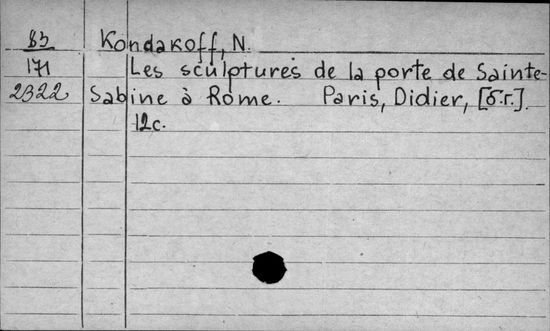 83 Kondakoff, N.
171 Les sculptures de la porte de Sainte-
2322 Sabine à Rome. Paris, Didier, [б.г.].
12с.